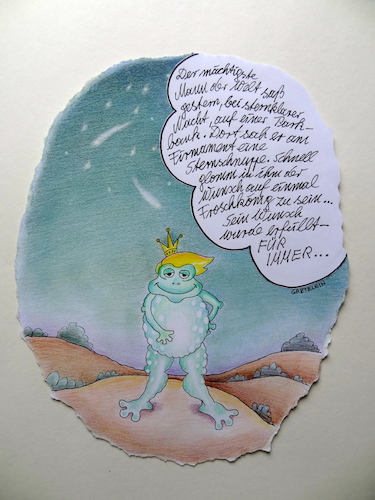 Der mächtigste
Mann der Welt saß
gestern, bei sternklarer
Nacht, auf einer Park-
bank. Dort sah er am
Firmament eine
Sternschnuppe. Schnell
glomm in ihm der
Wunsch auf einmal
Froschkönig zu sein...
Sein Wunsch
wurde erfüllt -
FÜR
IMMER...